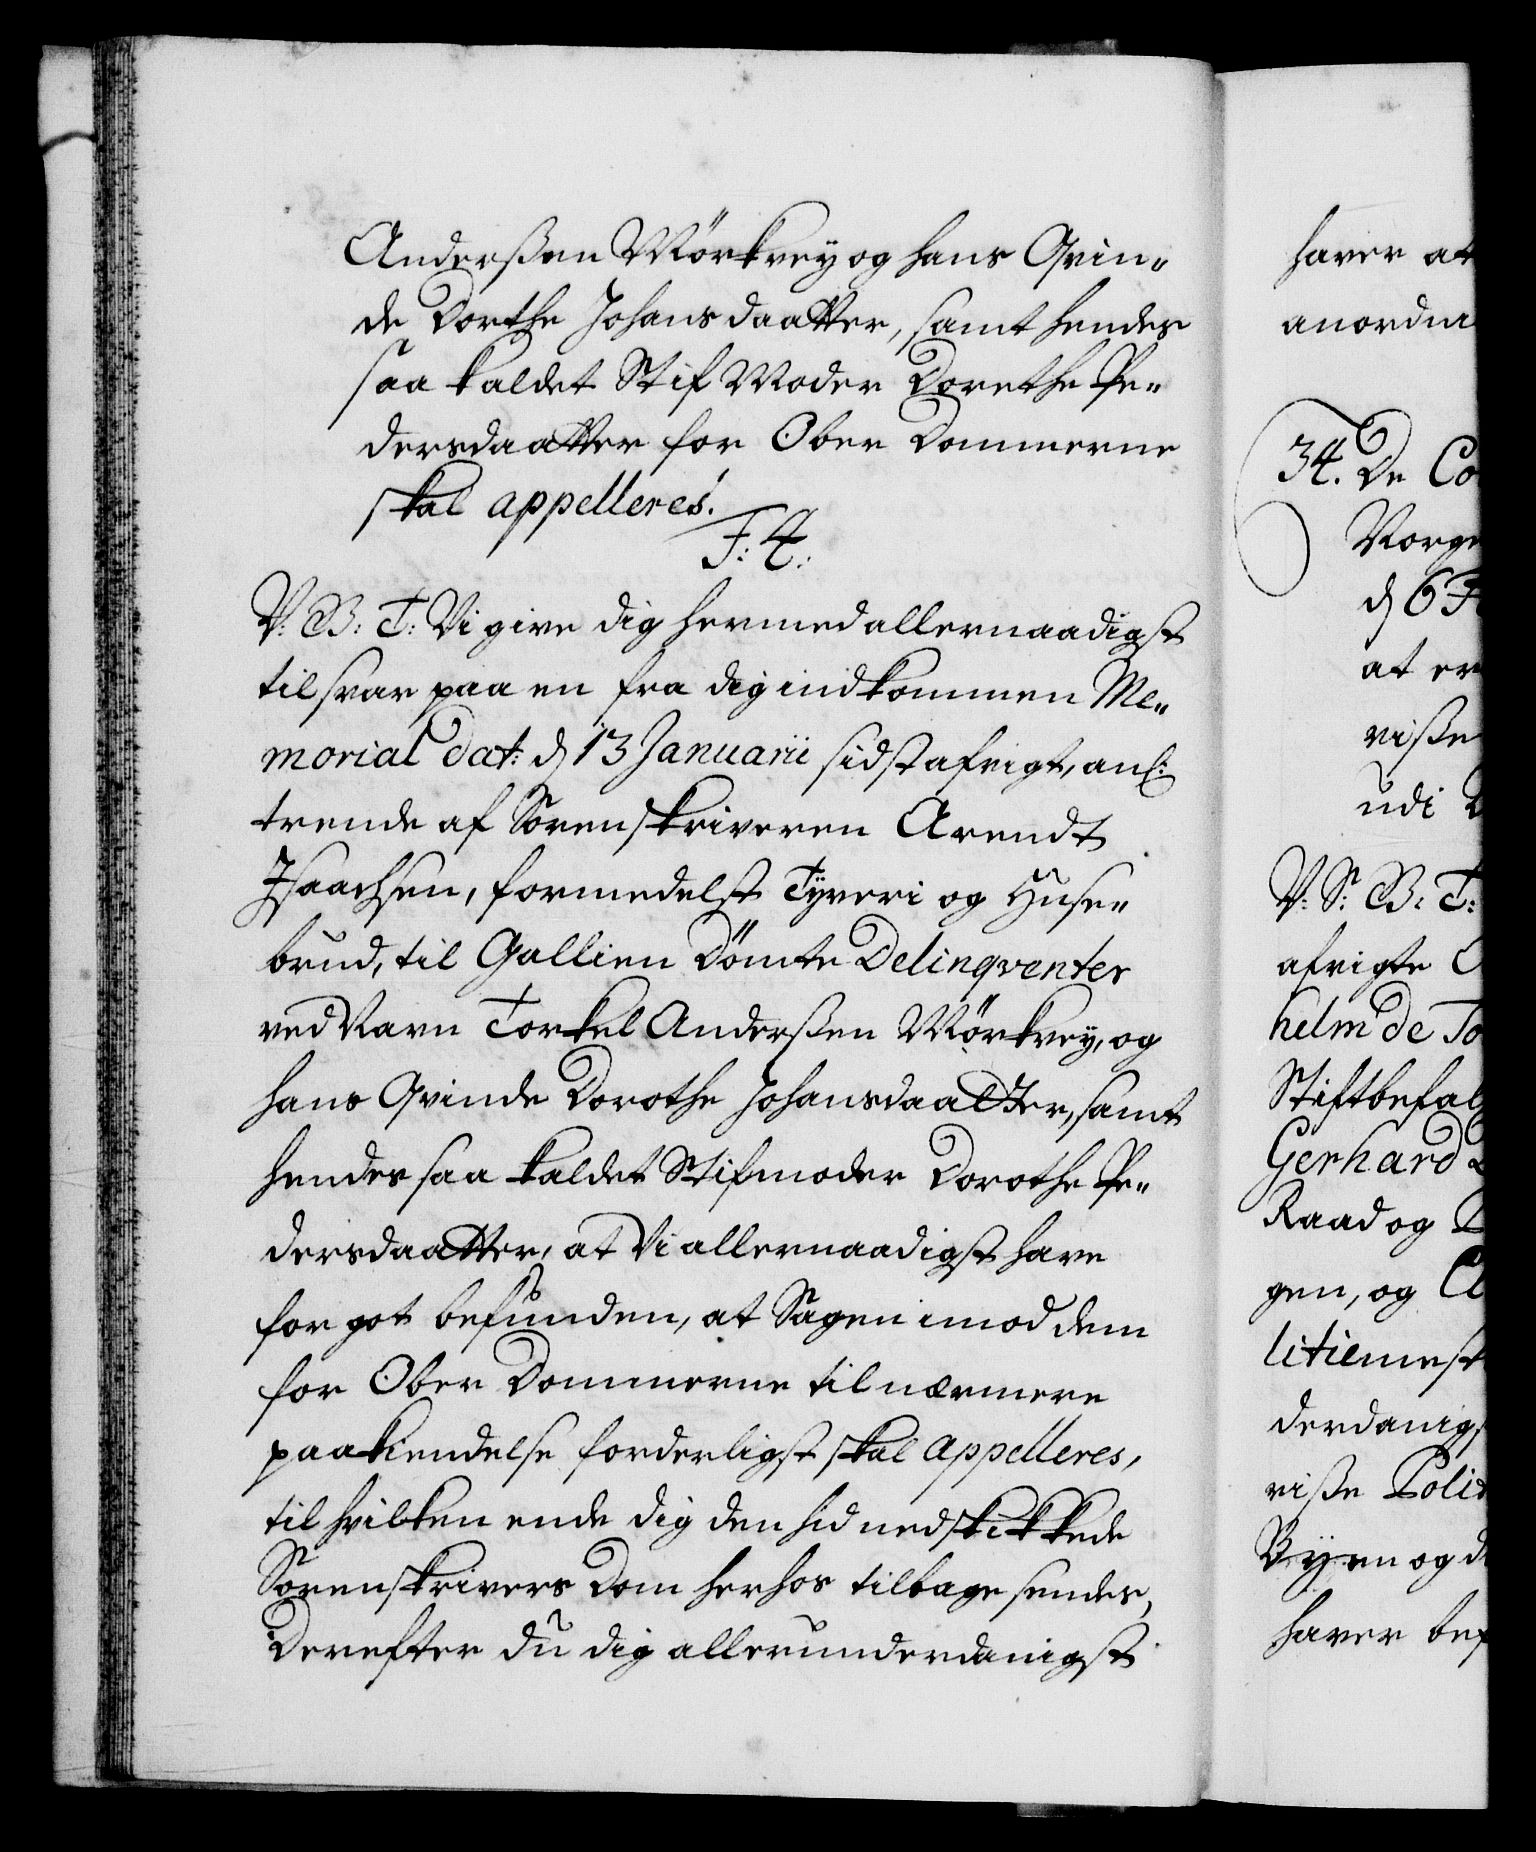 Anderßen Mörkvey og hans Qvin„
de Dorthe Johansdaatter, samt hendes
saa kaldet Stif Moder Dorethe Pe„
dersdaatter for Ober Dommerne
skal appelleres.
F: 4.
V: B: T: Vi give dig hermed allernaadigst
til svar paa en fra dig indkommen Me„
morial dat: d 13 Januarii sidst afvigt, anl:
trende af Sorenskriveren Arendt
Isaachsen, formedelst Tyveri og Huse„
brud, til Gallien dömte Delinqventer
ved Navn Torkel Anderßen Mörkvey, og
hans Qvinde Dorothe Johansdaatter, samt
hendes saa kaldet Stifmoder Dorothe Pe„
dersdaatter, at Vi allernaadigst have
for got befunden, at Sagen imod dem
for Ober Dommerne til nærmere
paakiendelse forderligst skal appelleres,
til hvilken ende dig den hid nedskikkede
Sorenskrivers Dom herhos tilbage sendes,
Derefter du dig allerunderdanigst
haver at
anordne
34. De Co
Norge
d 6 F
at er
viße
udi
V: S: B: T:
afvigte
helm de To
Stiftbefal
Gerhard
Raad og
gen, og Cl
litiemest
derdanigs
viße Polit
Byen og d
haver bef